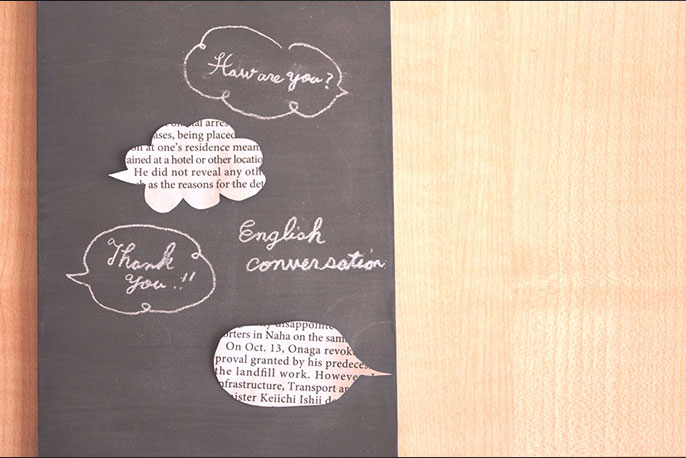 Haw are you?
al arres
ases, being placed
at one's residence mean
ained at a hotel or other locatio
He did not reveal any oth
as the reasons for the det
English
conversation
Thank
you !!
disappointe
orters in Naha on the sam
On Oct. 13, Onaga revok
proval granted by his predeces
the landfill work. However
nfrastructure, Transport an
nister Keiichi Ishii d